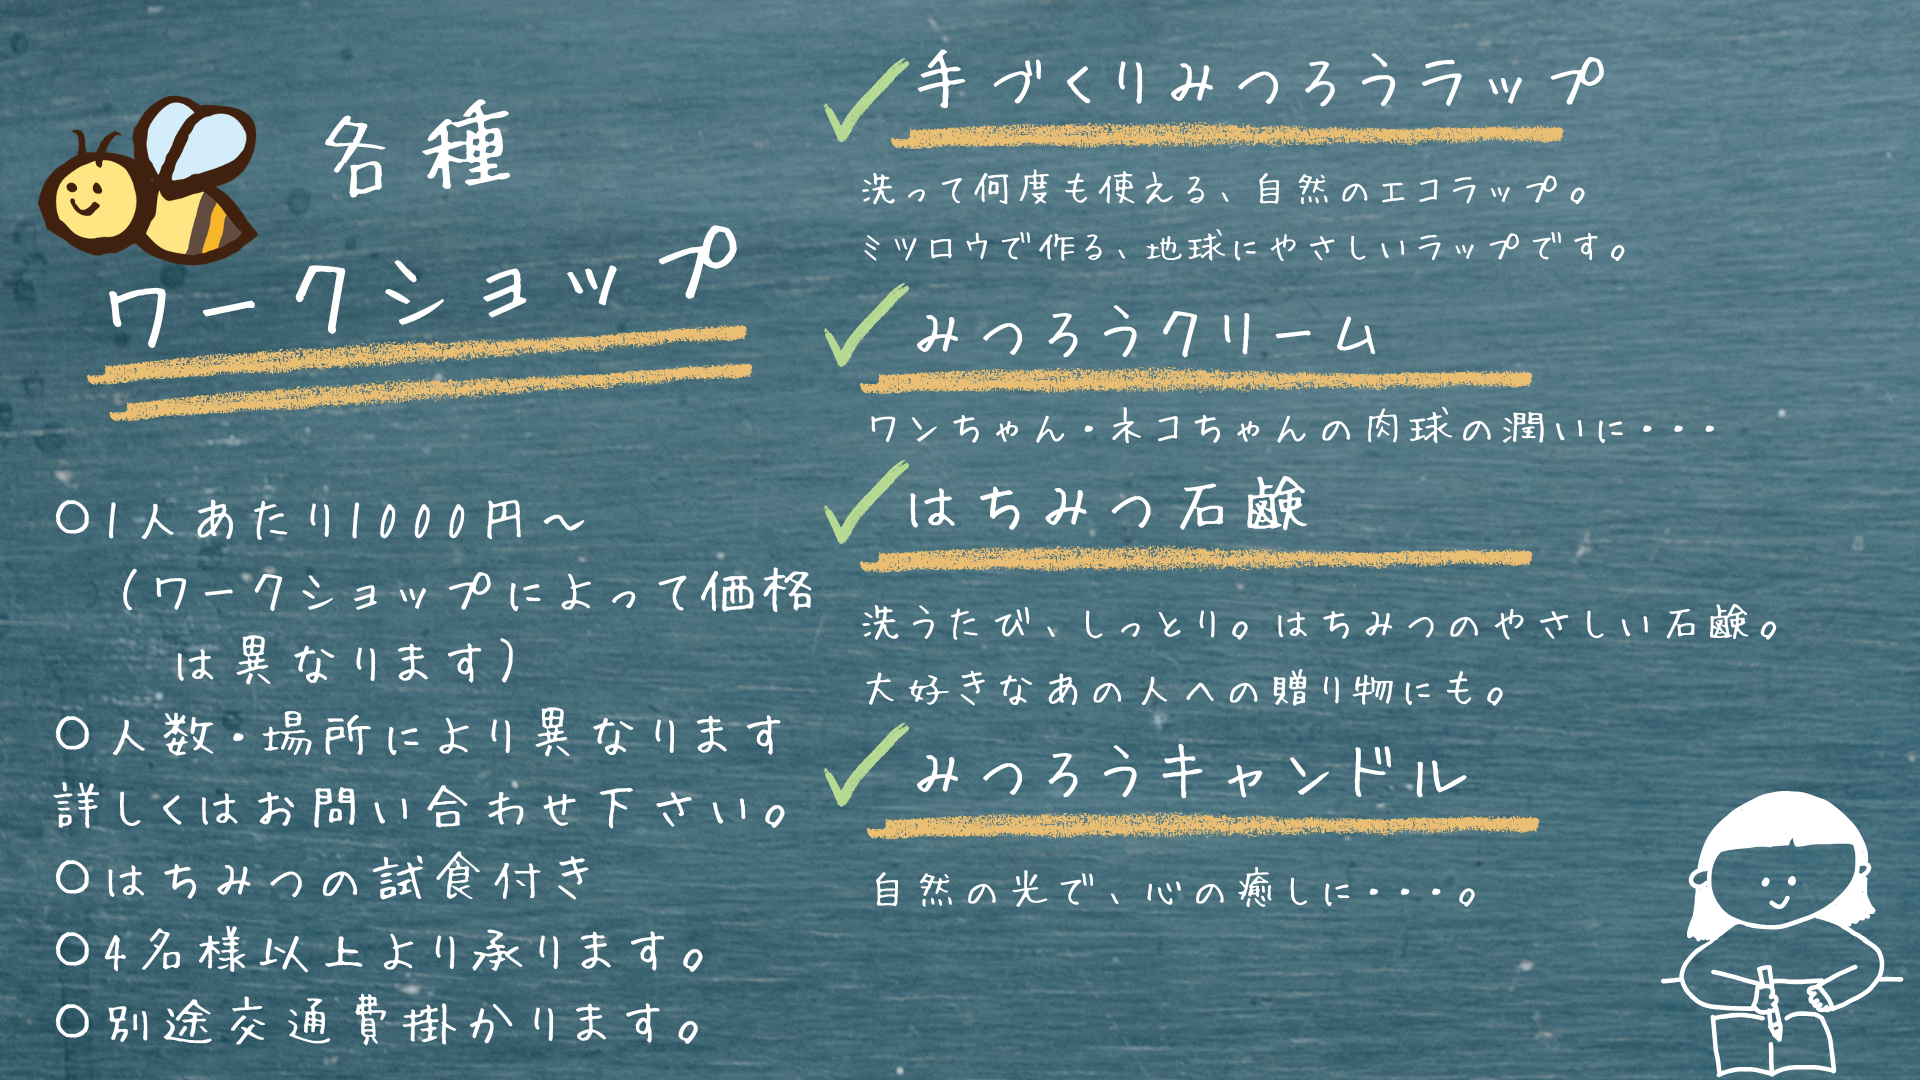 各種
ワークショップ
〇1人あたり1000円〜
（ワークショップによって価格
は異なります）
〇人数・場所により異なります
詳しくはお問い合わせ下さい。
〇はちみつの試食付き
〇4名様以上より承ります。
〇別途交通費掛かります。
手づくりみつろうラップ
洗って何度も使える、自然のエコラップ。
ミツロウで作る、地球にやさしいラップです。
みつろうクリーム
ワンちゃん・ネコちゃんの肉球の潤いに・・・
はちみつ石鹸
洗うたび、しっとり。はちみつのやさしい石鹸。
大好きなあの人への贈り物にも。
みつろうキャンドル
自然の光で、心の癒しに・・・。